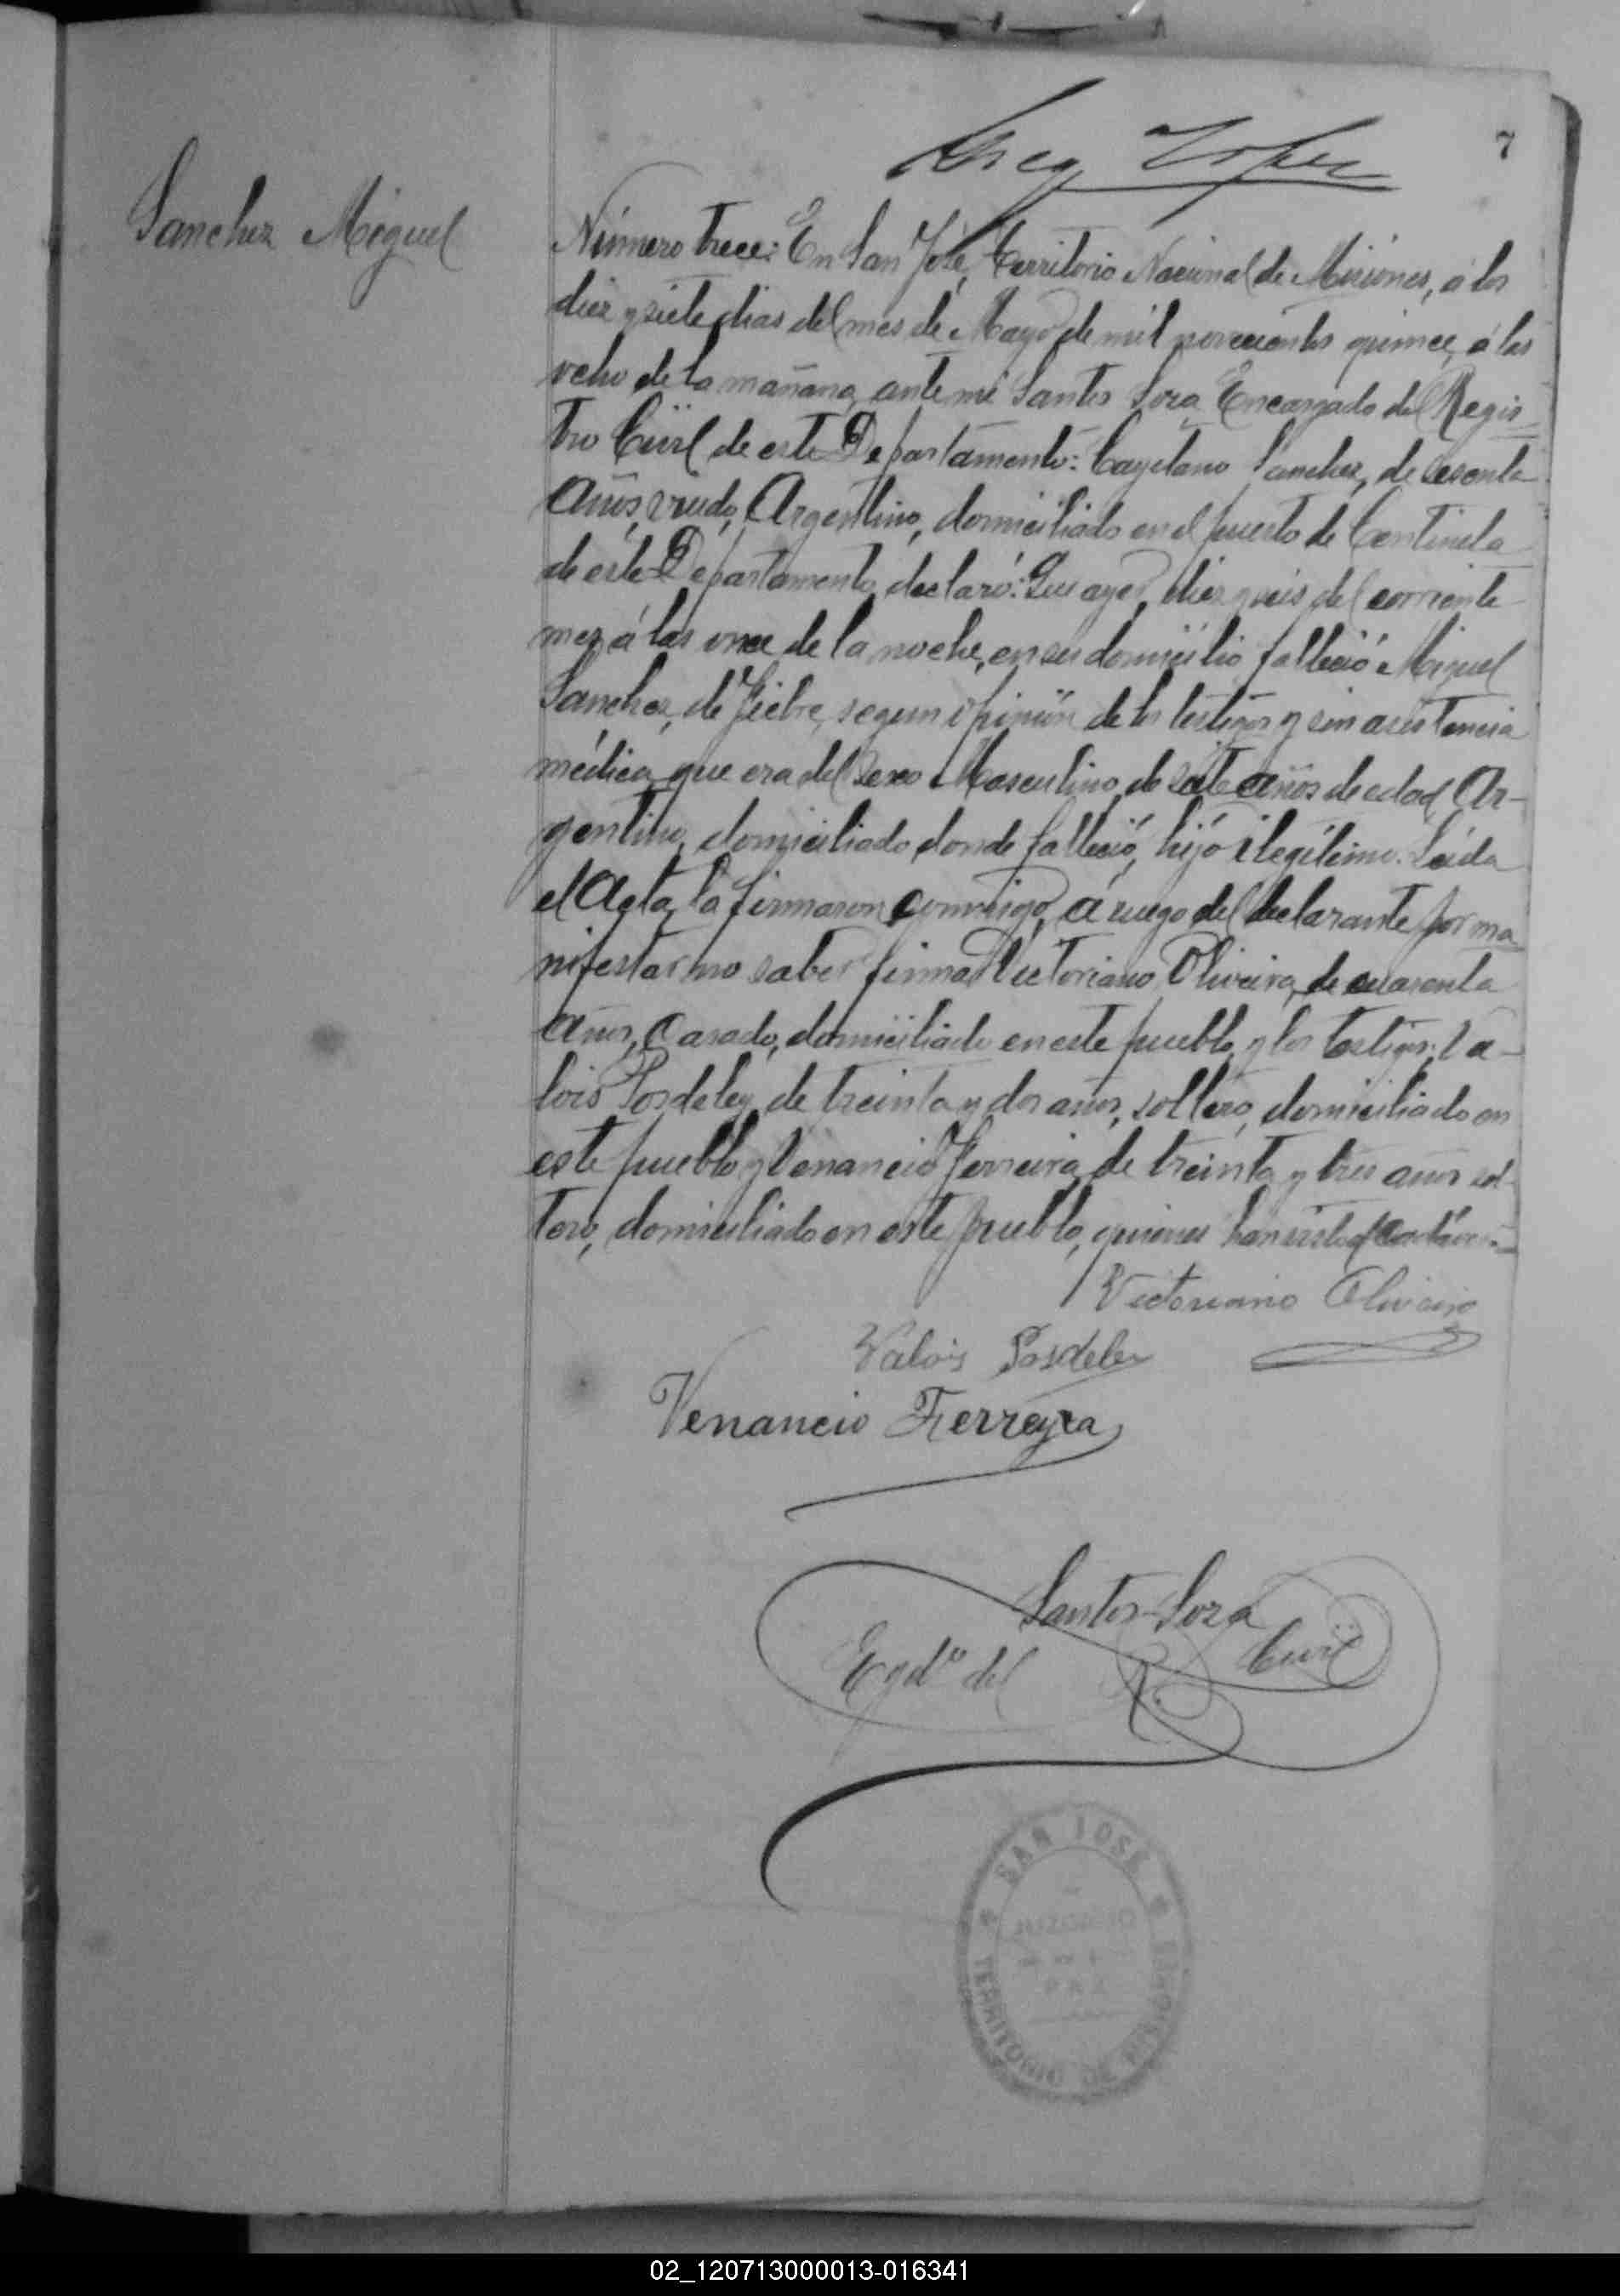 7
Lopez
Sanchez Miguel
Número trece: En San José, Territorio Nacional de Misiones, á los
diez y siete dias del mes de Mayo de mil novecientos quince, á las
ocho de la mañana, ante mi Santos Soza Encargado del Regis
tro Civil de este Departamento: Cayetano Sanchez, de sesenta
años, viudo, Argentino, domiciliado en el puerto de Centinela
de este Departamento, declaró: Que ayer, diez y seis del corriente
mes á las once de la noche, en su domicilio falleció Miguel
Sanchez, de fiebre, segun opinión de los testigos y sin asistencia
médica, que era del sexo Masculino, de siete años de edad, Ar-
gentino, domiciliado donde falleció, hijo ilegítimo. Leida
el Acta, la firmaron conmigo, á ruego del declarante por ma
nifestar no saber firmar Victoriano Oliveira, de cuarenta
años, Casado, domiciliado en este pueblo, y los testigos, Va-
lois Posdeley, de treinta y dos años, soltero, domiciliado en
este pueblo y Venancio Ferreira, de treinta y tres años sol-
tero, domiciliado en este pueblo, quienes han visto el cadáver.
Victoriano Oliveira
Valois Posdeley
Venancio Ferreyra
Santos Soza
Egdo del R. Civil
SAN JOSÉ
JUZGADO
DE
PAZ
TERRITORIO DE MISIONES
02_120713000013-016341